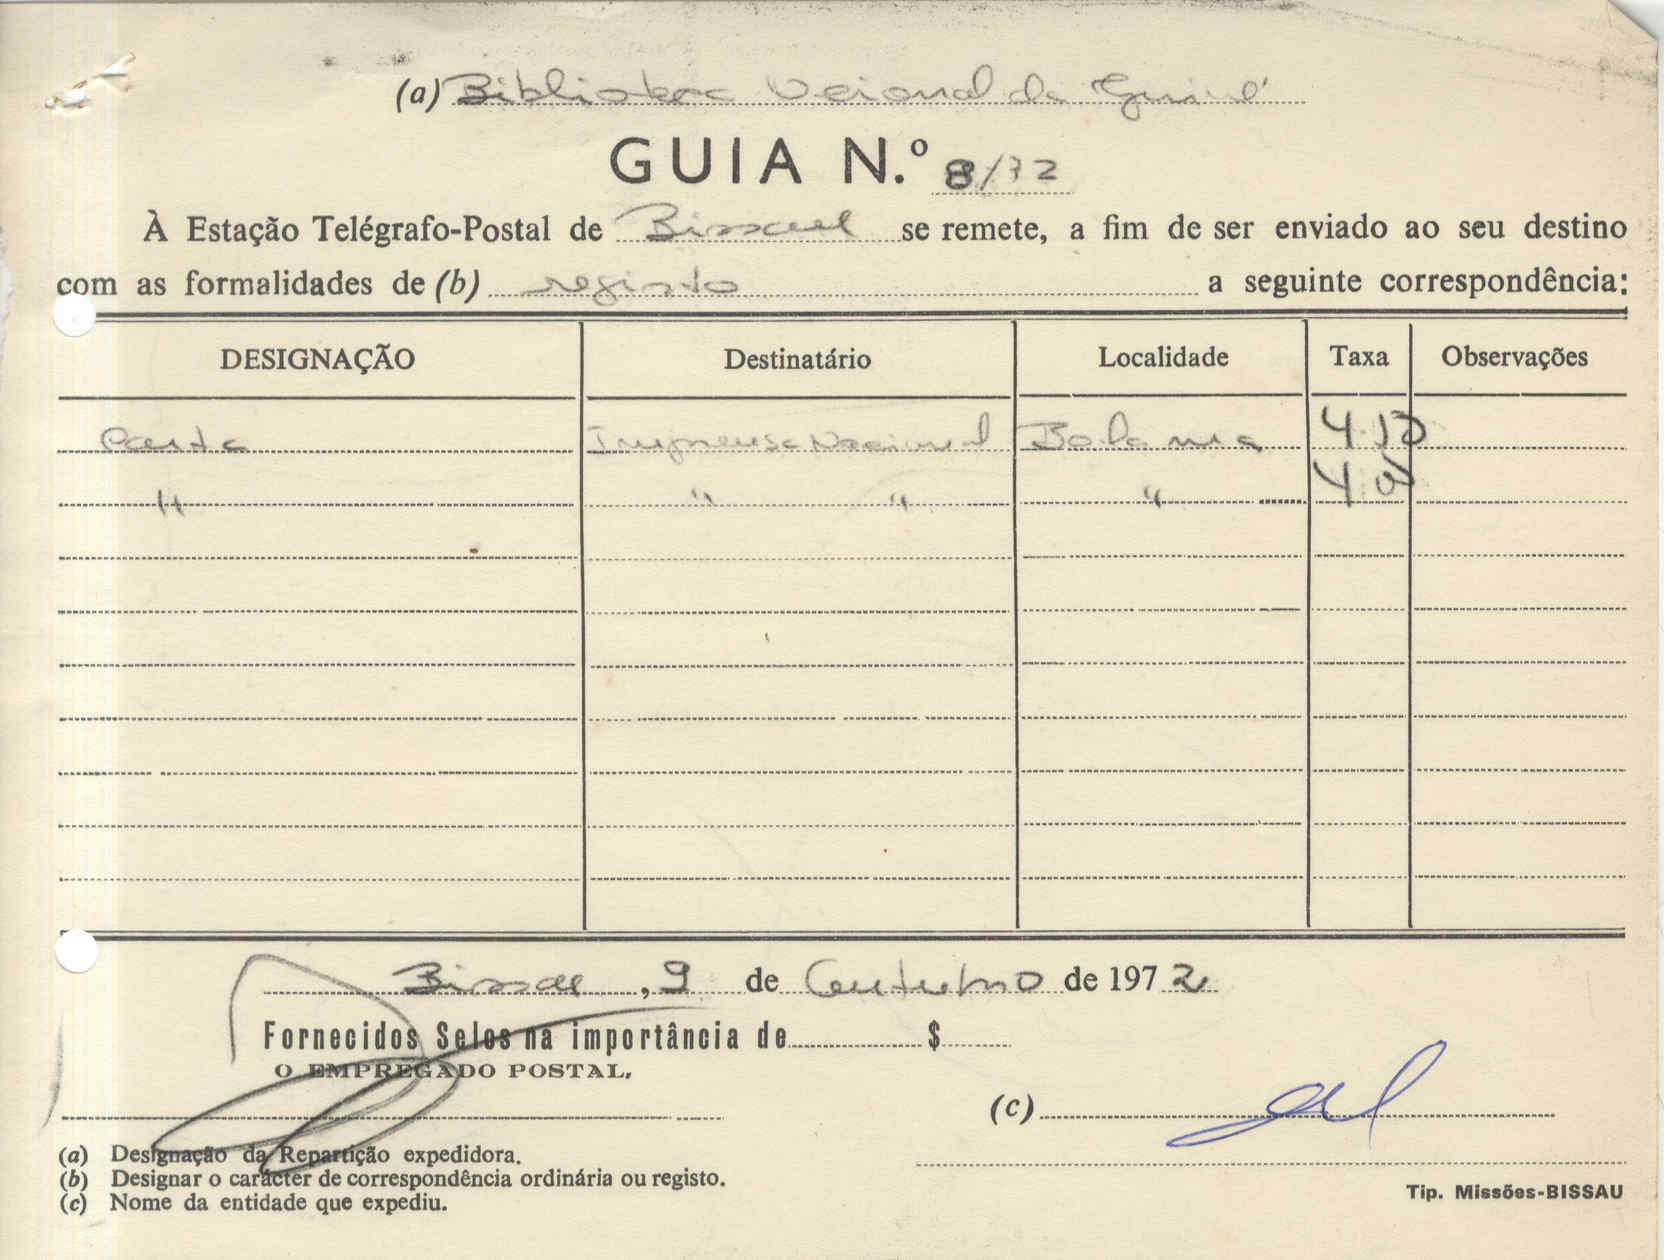 (a) Biblioteca Nacional da Guiné
GUIA N.º 8/72
À Estação Telégrafo-Postal de Bissau se remete, a fim de ser enviado ao seu destino
com as formalidades de (b) registo a seguinte correspondência:
DESIGNAÇÃO Destinatário Localidade Taxa Observações
Carta Imprensa Nacional Bolama 4.10
" " " " 4
Bissau, 9 de Outubro de 1972
Fornecidos Selos na importância de $
O EMPREGADO POSTAL,
(c)
(a) Designação da Repartição expedidora.
(b) Designar o carácter de correspondência ordinária ou registo.
(c) Nome da entidade que expediu.
Tip. Missões-BISSAU